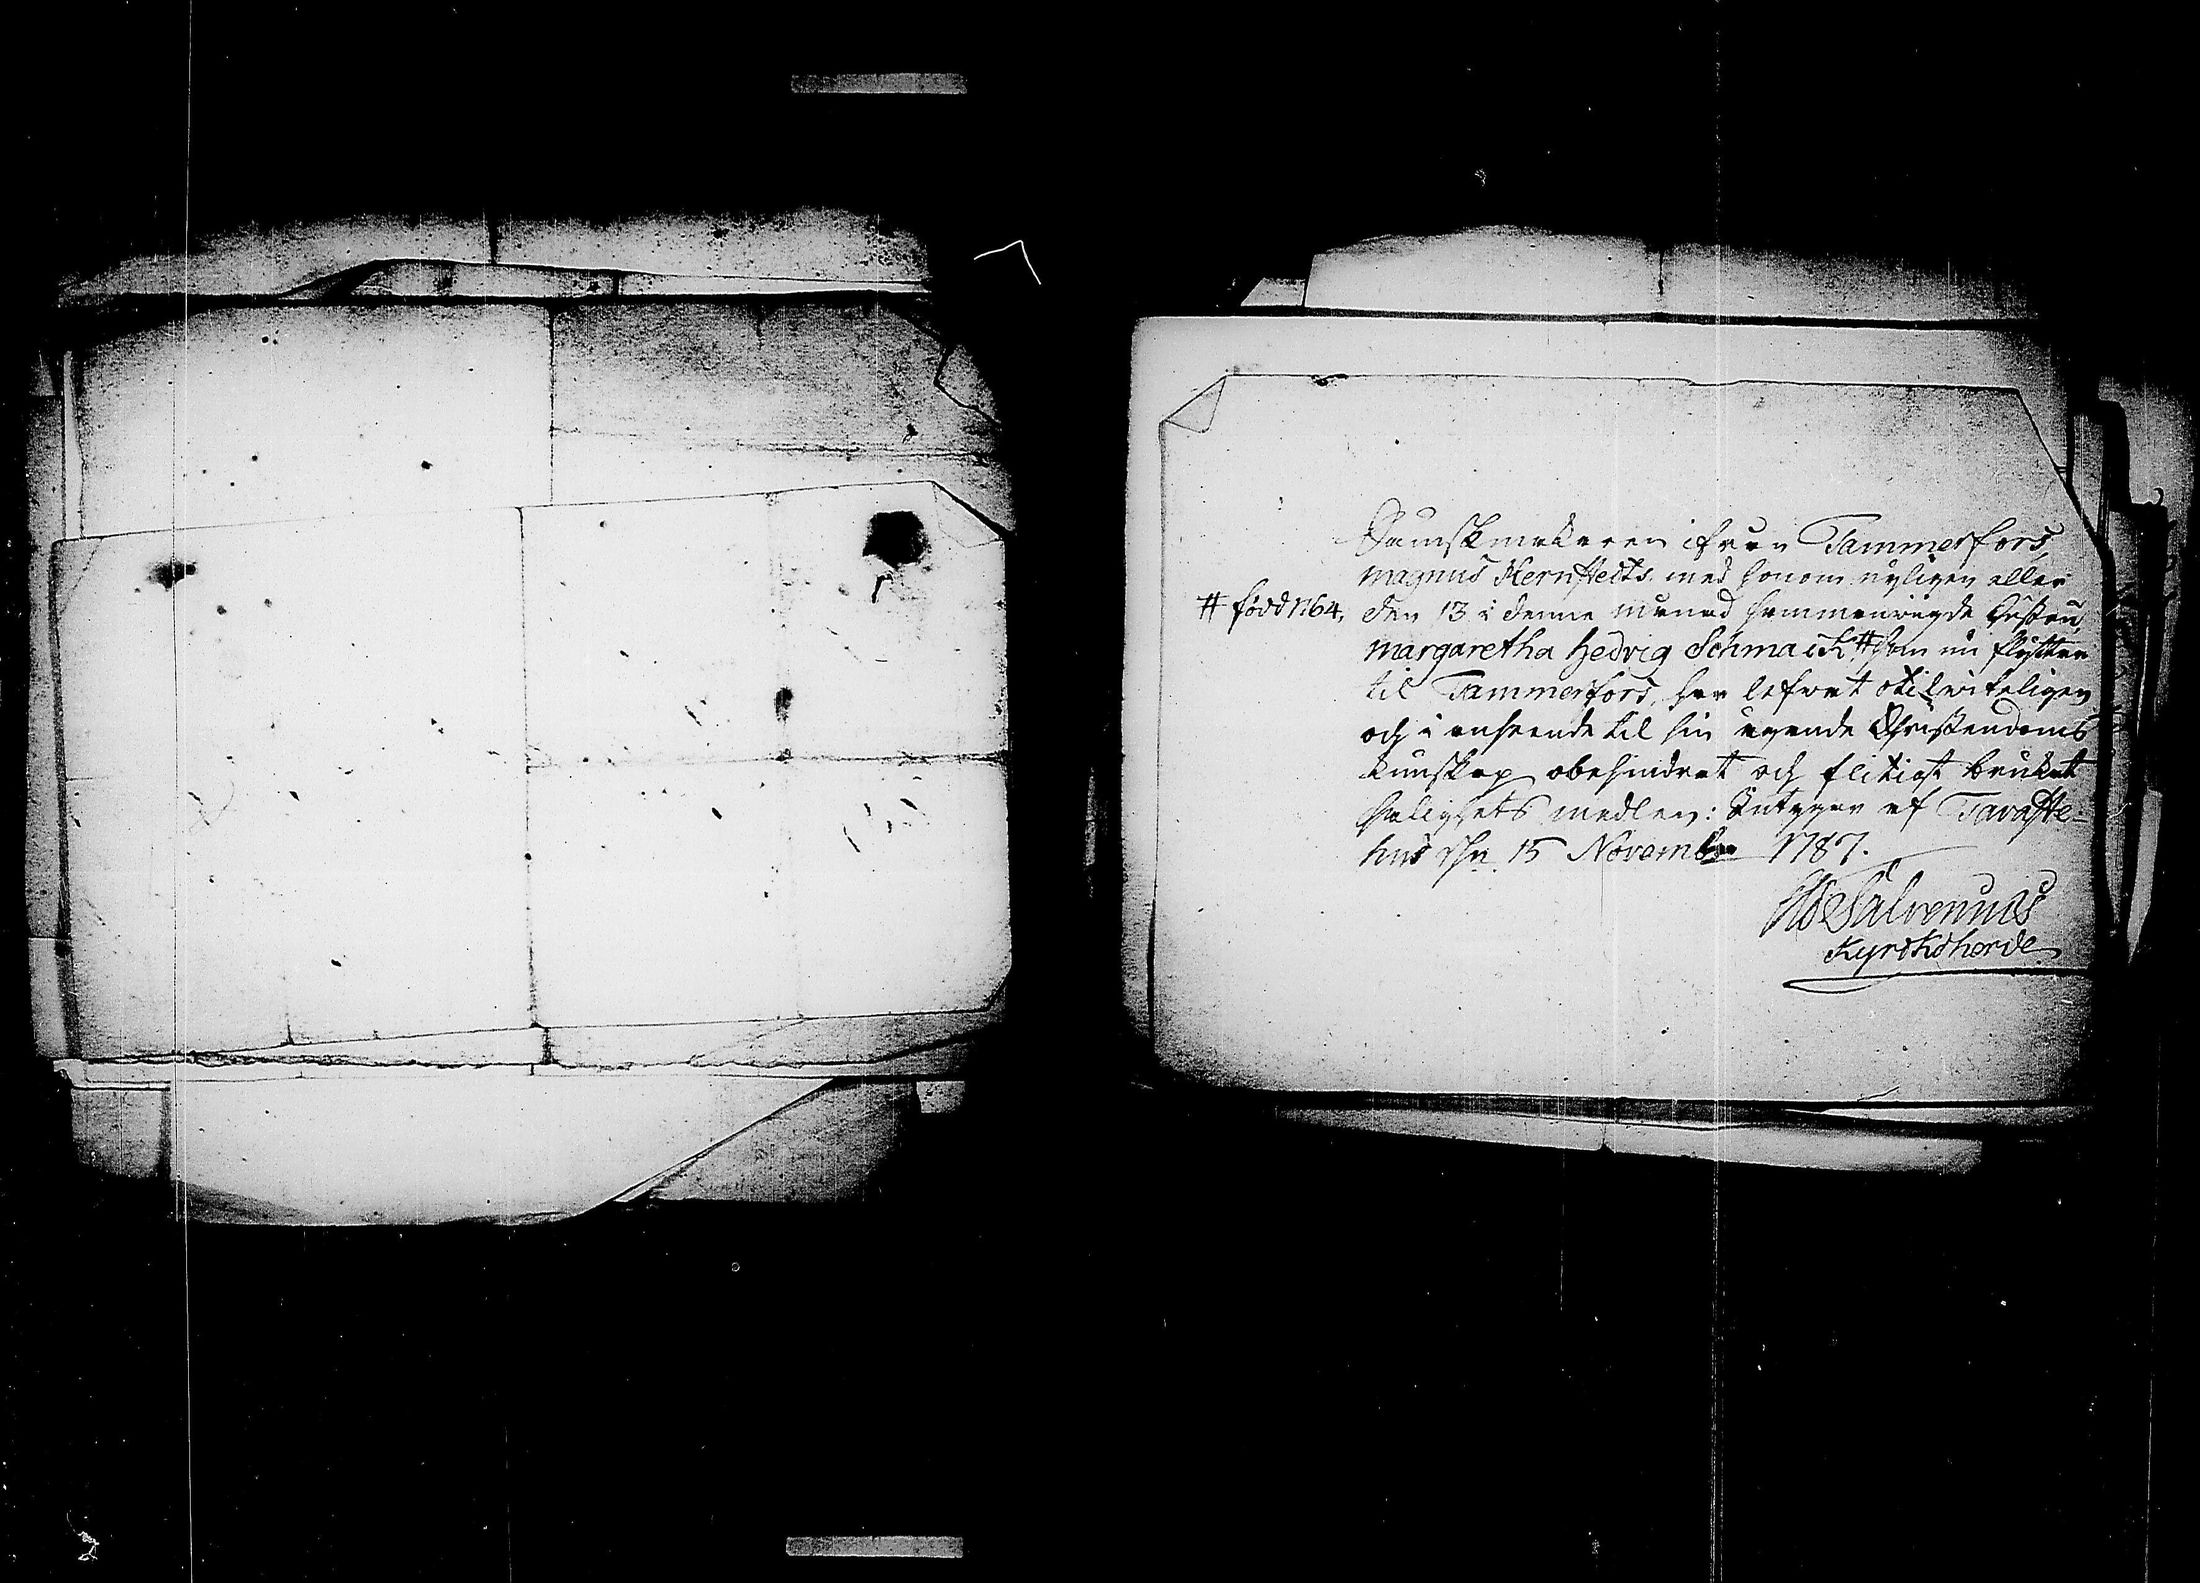 Handskmakaren ifrån Tammerfors,
Magnus Hernstedts med honom nyligen eller
# född 1764,
den 13 i denne månad sammanwigde Hustru,
Margaretha Hedvig Schmack # som nu flyttar
til Tammerfors, har lefwat otilwiteligen
och i anseende til sin ägande Christendoms
kunskap obehindrat och flitigt brukat
Salighets medlen: Intygar af Tavaste-
hus d. 15 November 1787.
Kyrckoherde